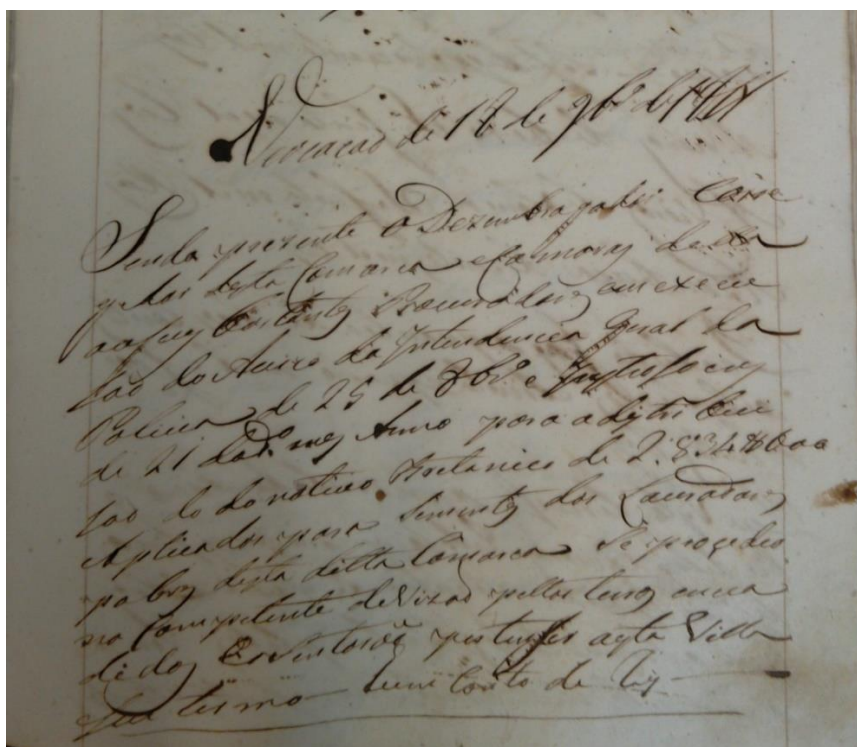 Vereacao de 18 de 9bro de 1811
Sendo prezente o Dezembargador Corre
gedor desta Comarca e Camaras della
e Procuradores em execu
cao do Avizo da Intendencia Geral da
Policia de 25 de 8bro e Instrucoens
de 21 do do mez Anno para a destribui
cao do donativo Britanico de 2.834$600
Aplicados para Sementes dos Lavradores
pobres desta ditta Comarca se procedeo
na Competente devizao pellas terras
didas pertenser a esta Villa
Seu termo hum Conto de Reis